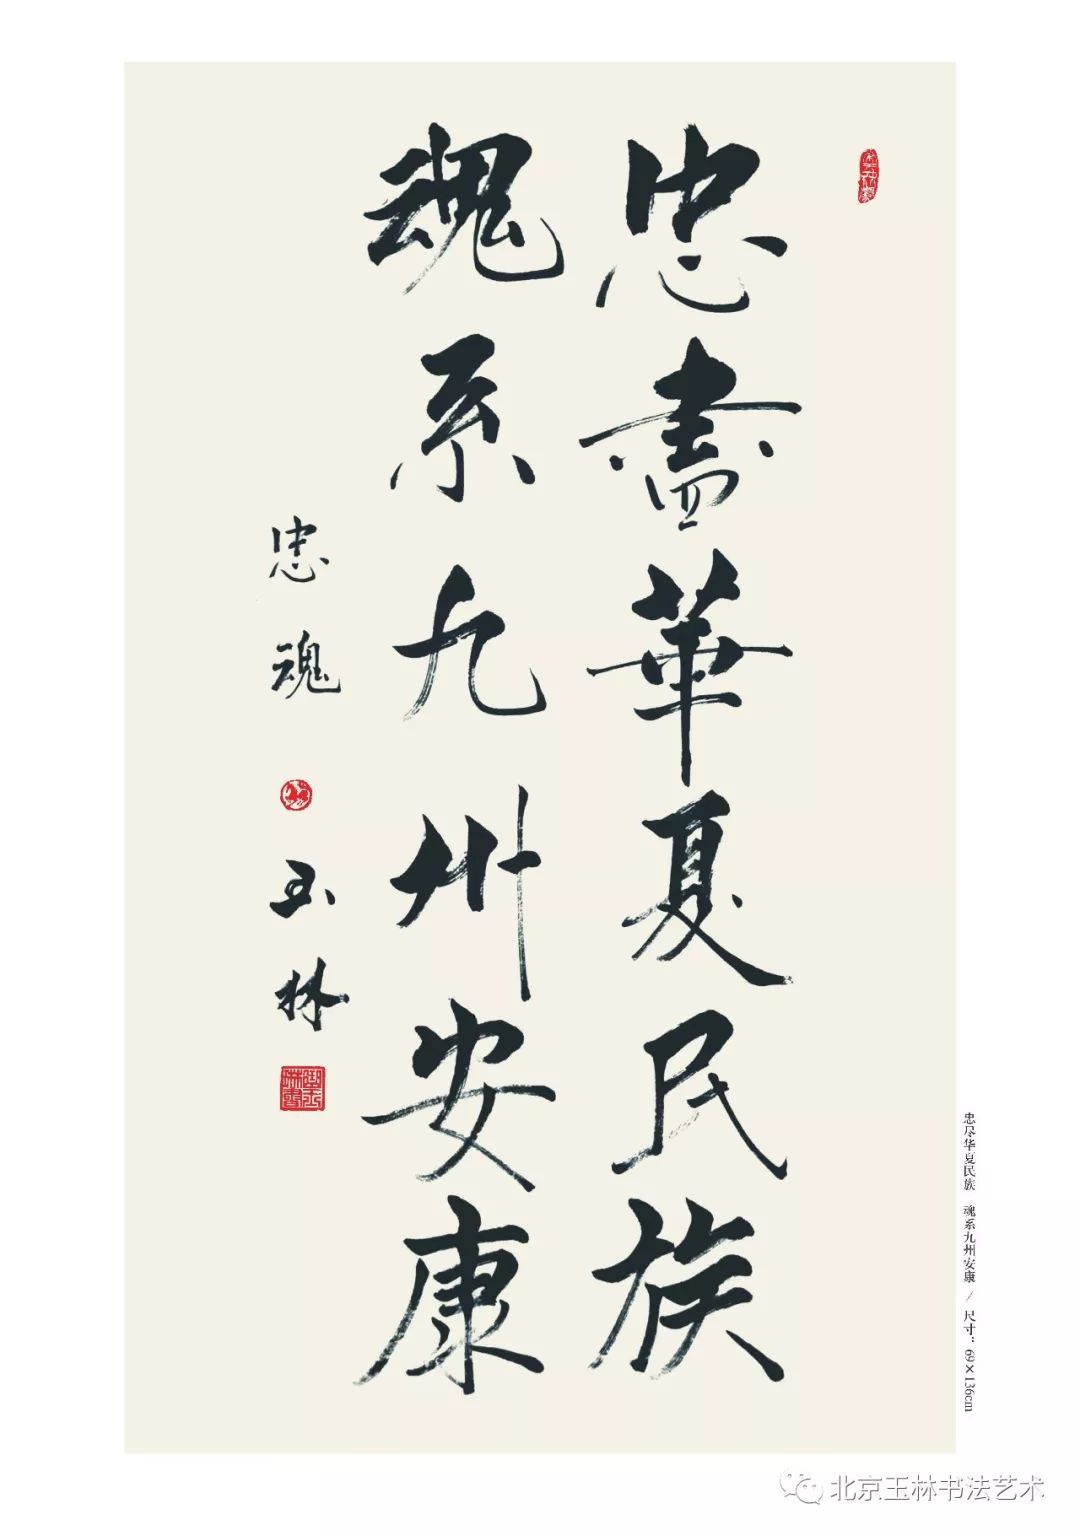 忠盡華夏民族
魂系九州安康
忠魂 玉林
忠尽华夏民族 魂系九州安康 / 尺寸：69×136cm
北京玉林书法艺术